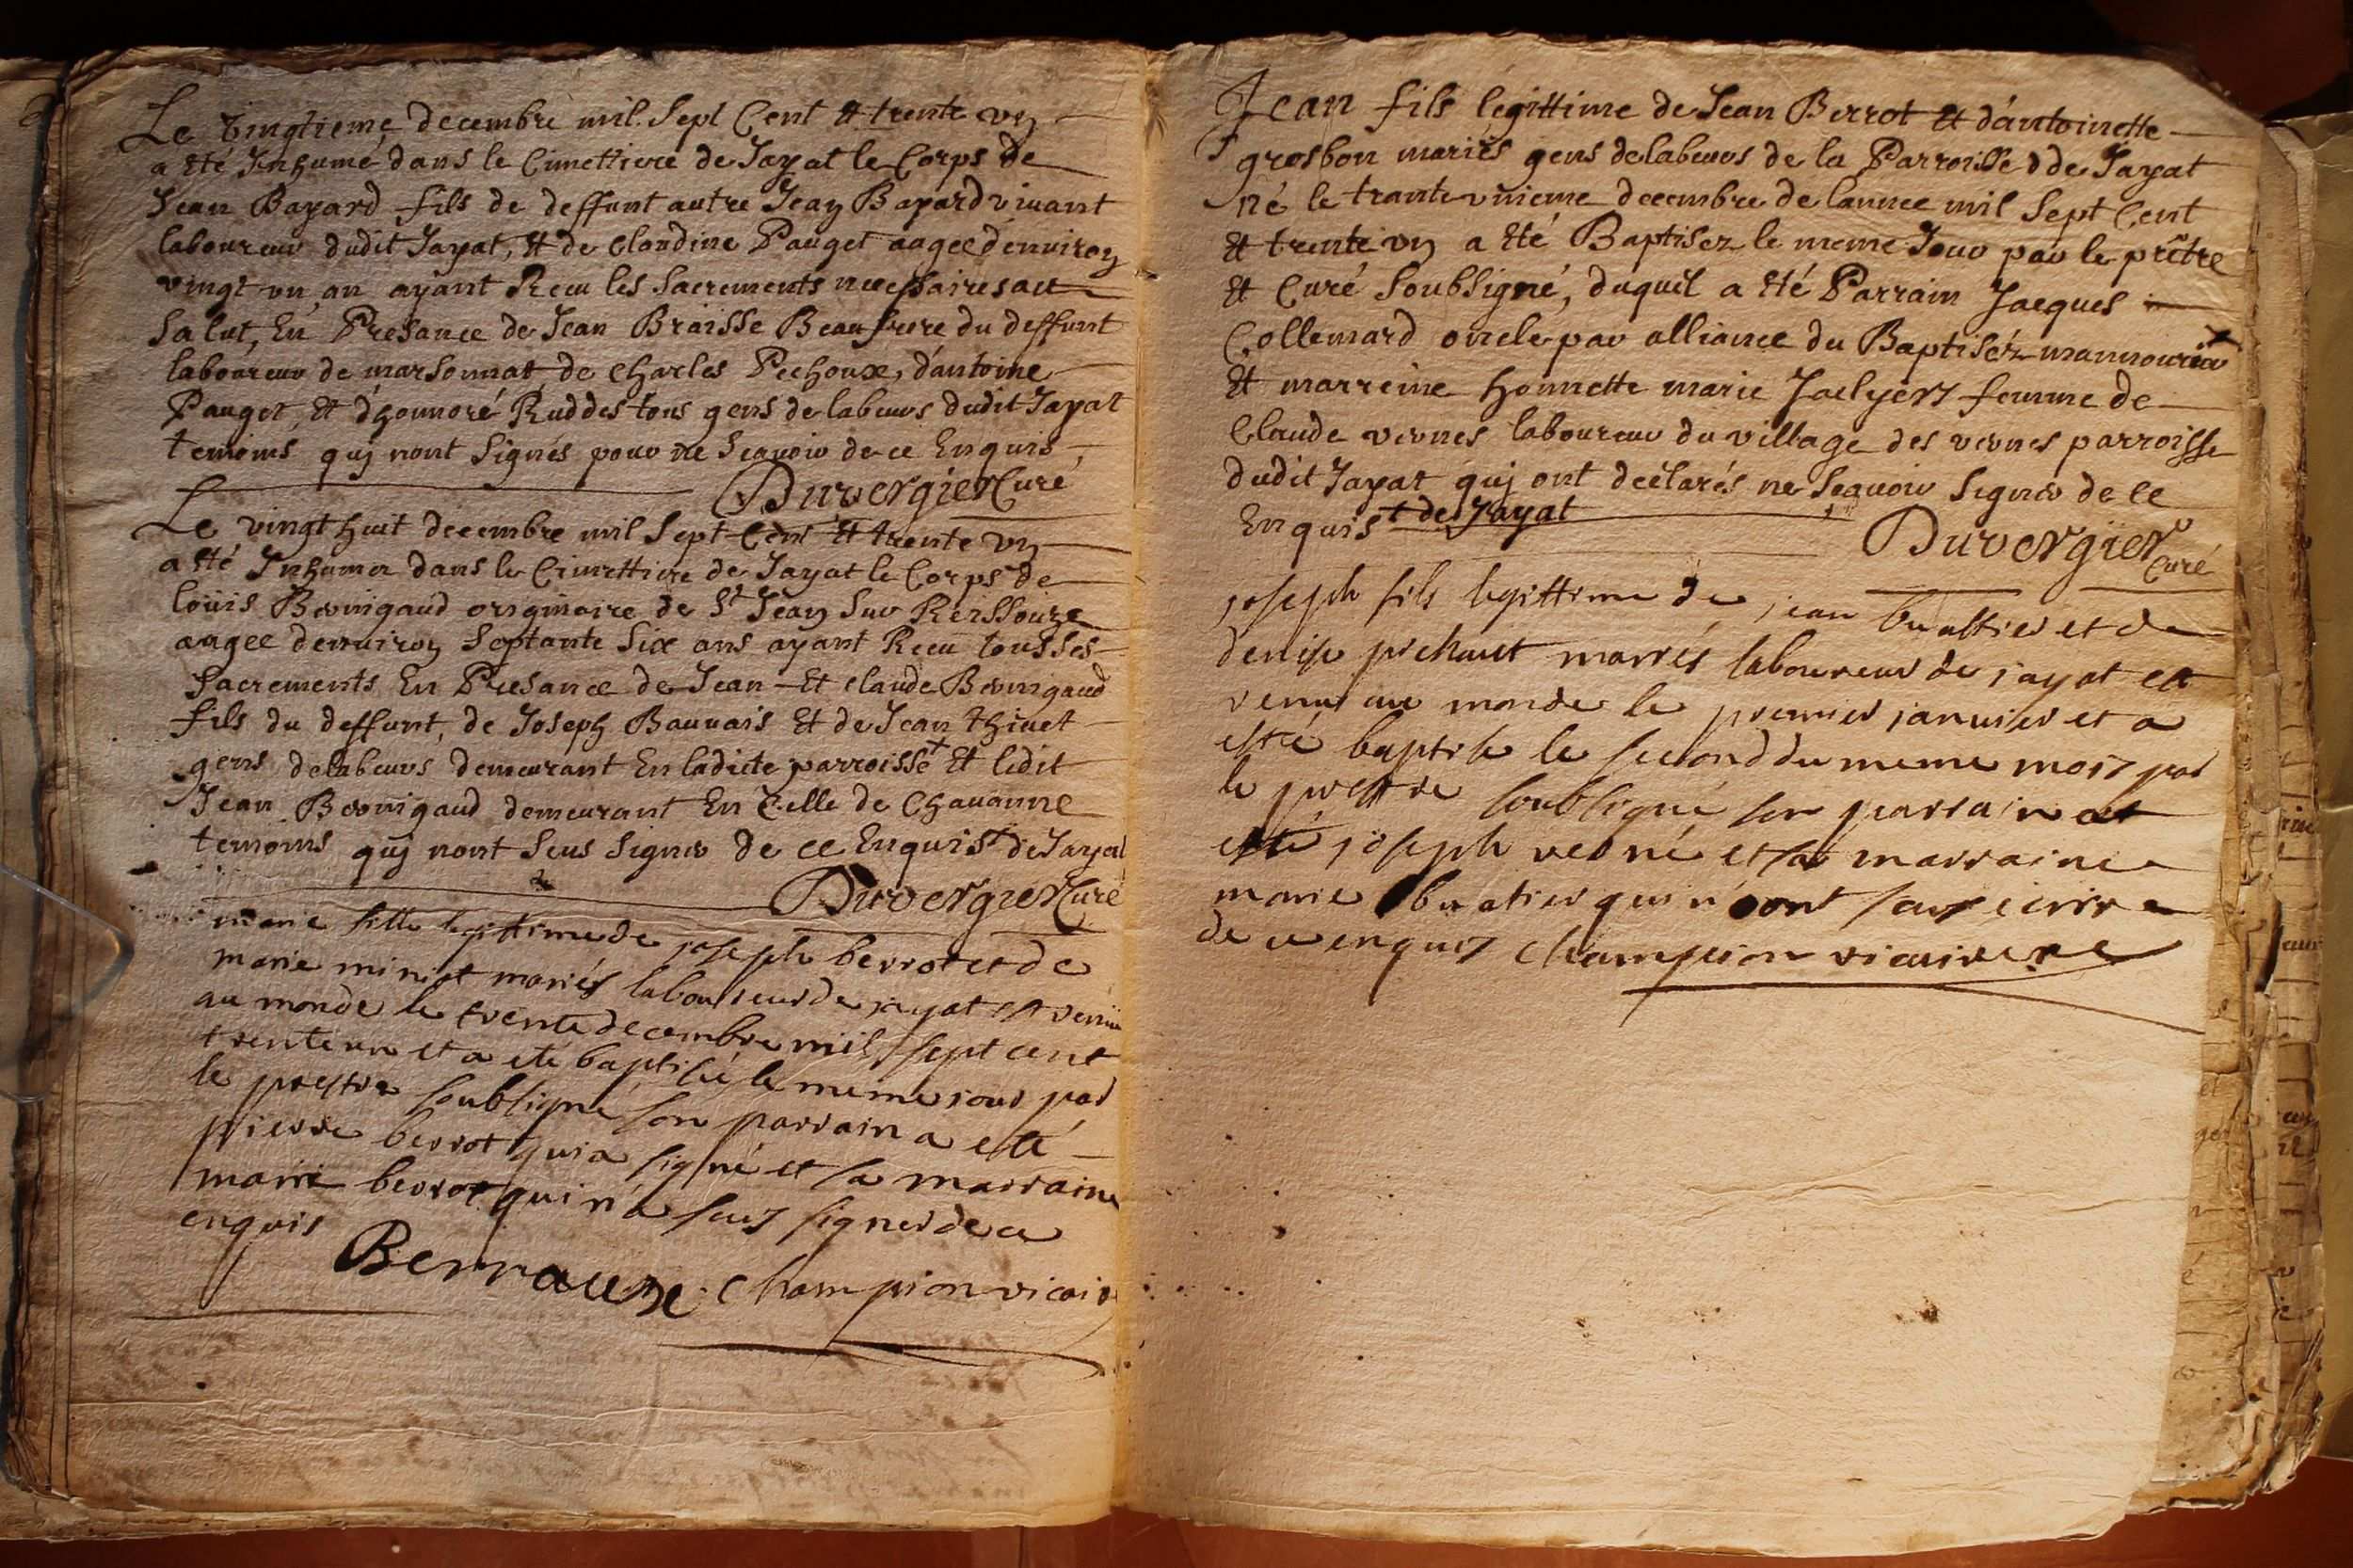 Le vingtieme decembre mil sept Cent Et trente vn
a Eté Inhumé dans le Cimettiere de Jayat le Corps de
Jean Bayard fils de deffunt autre Jean Bayard vivant
laboureur dudit Jayat, Et de Claudine Pauget aagee denviron
vingt vn an ayant Receu les Sacrements necessaires au
Salut, En Presance de Jean Braisse Beaufrere du deffunt
laboureur de marsonnat, de Charles Pechoux, d'antoine
Pauget, Et d'honnoré Ruddes tous gens de labeurs dudit Jayat
temoins quj nont Signés pour ne Scavoir de ce Enquis
Duvergier Curé
Le vingt huit decembre mil Sept Cent Et trente vn
a Eté Inhumer dans le Cimettiere de Jayat le Corps de
loüis Bornigaud originaire de St Jean Sur Reissouze
aagee denviron Septante Six ans ayant Receu tous Ses
Sacrements En Presance de Jean Et Claude Bornigaud
fils du deffunt, de Joseph Bauvais Et de Jean thivet
gens de labeurs demeurant En ladicte parroisse + Et ledit
Jean Bornigaud demeurant En Celle de Chavanne
temoins quj nont Seus Signer de ce Enquis + de Jayat
Duvergier Curé
marie fille legittime de joseph berrot et de
marie minist mariés laboureur de jayat est venüe
au monde le trente decembre mil sept cent
trente un et a eté baptisée le meme jour par
le prestre soubsigné son parrain a esté
pierre berrot qui a signé et sa marraine
marie berrot qui n'a seus signer de ce
enquis
Berraux Champion vicaire
Jean fils legittime de Jean Berrot Et d'antoinette
grosbon mariés gens de labeurs de la Parroisse d de Jayat
né le trante vnieme decembre de lannee mil Sept Cent
Et trente vn a Eté Baptisez le meme Jour par le prêtre
Et Curé Soubsigné, duquel a Eté Parrain Jacques
Collemard oncle par alliance du Baptiséz manouvrier +
Et marreine honnette marie Jaelyers femme de
Claude vernes laboureur du village des vernes parroisse
dudit Jayat quj ont déclarés ne Sçavoir Signer de ce
Enquis + de Jayat
Duvergier Curé
joseph fils legittime de jean buattier et de
denise prehaut mariés laboureur de jayat est
venu au monde le premier janvier et a
esté baptisé le second du meme mois par
le prestre soubsigné son parrain at
esté joseph verné et sa marraine
marie buatier qui n'ont seus ecrire
de ce enquis Champion vicaire